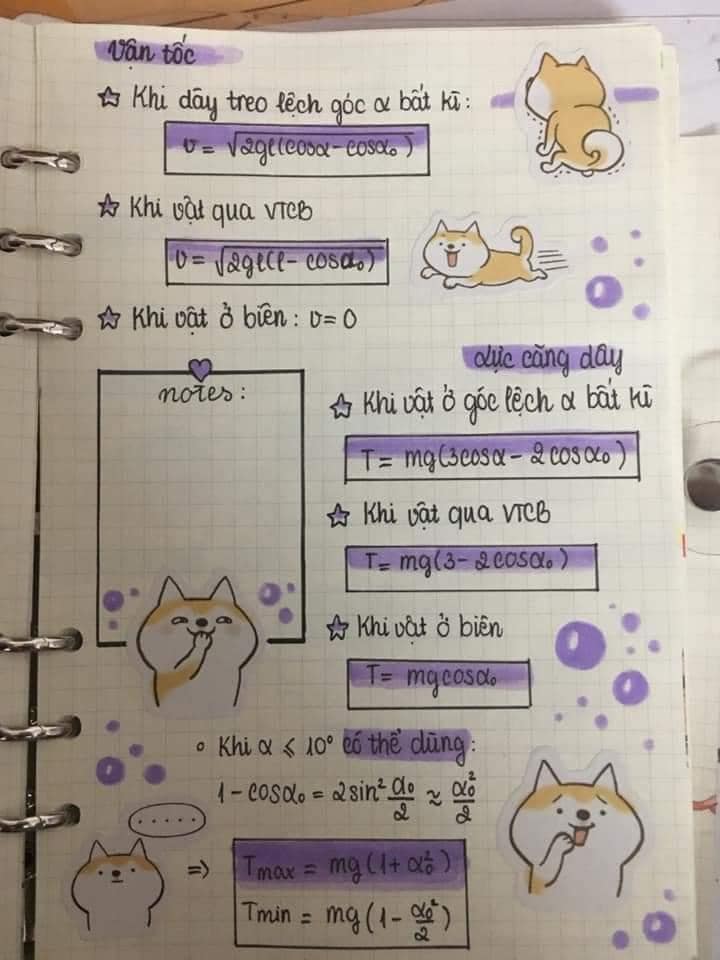 Vận tốc
☆ Khi dây treo lệch góc α bất kì:
v = √2gl(cosα - cosα₀)
☆ Khi vật qua VTCB
v = √2gl(1 - cosα₀)
☆ Khi vật ở biên: v = 0
notes:
Lực căng dây
☆ Khi vật ở góc lệch α bất kì
T = mg(3cosα - 2cosα₀)
☆ Khi vật qua VTCB
T = mg(3 - 2cosα₀)
☆ Khi vật ở biên
T = mgcosα₀
∘ Khi α ⩽ 10° có thể dùng:
1 - cosα₀ = 2sin² α₀/2 ≈ α₀²/2
.....
=> Tmax = mg(1 + α₀²)
Tmin = mg(1 - α₀²/2)